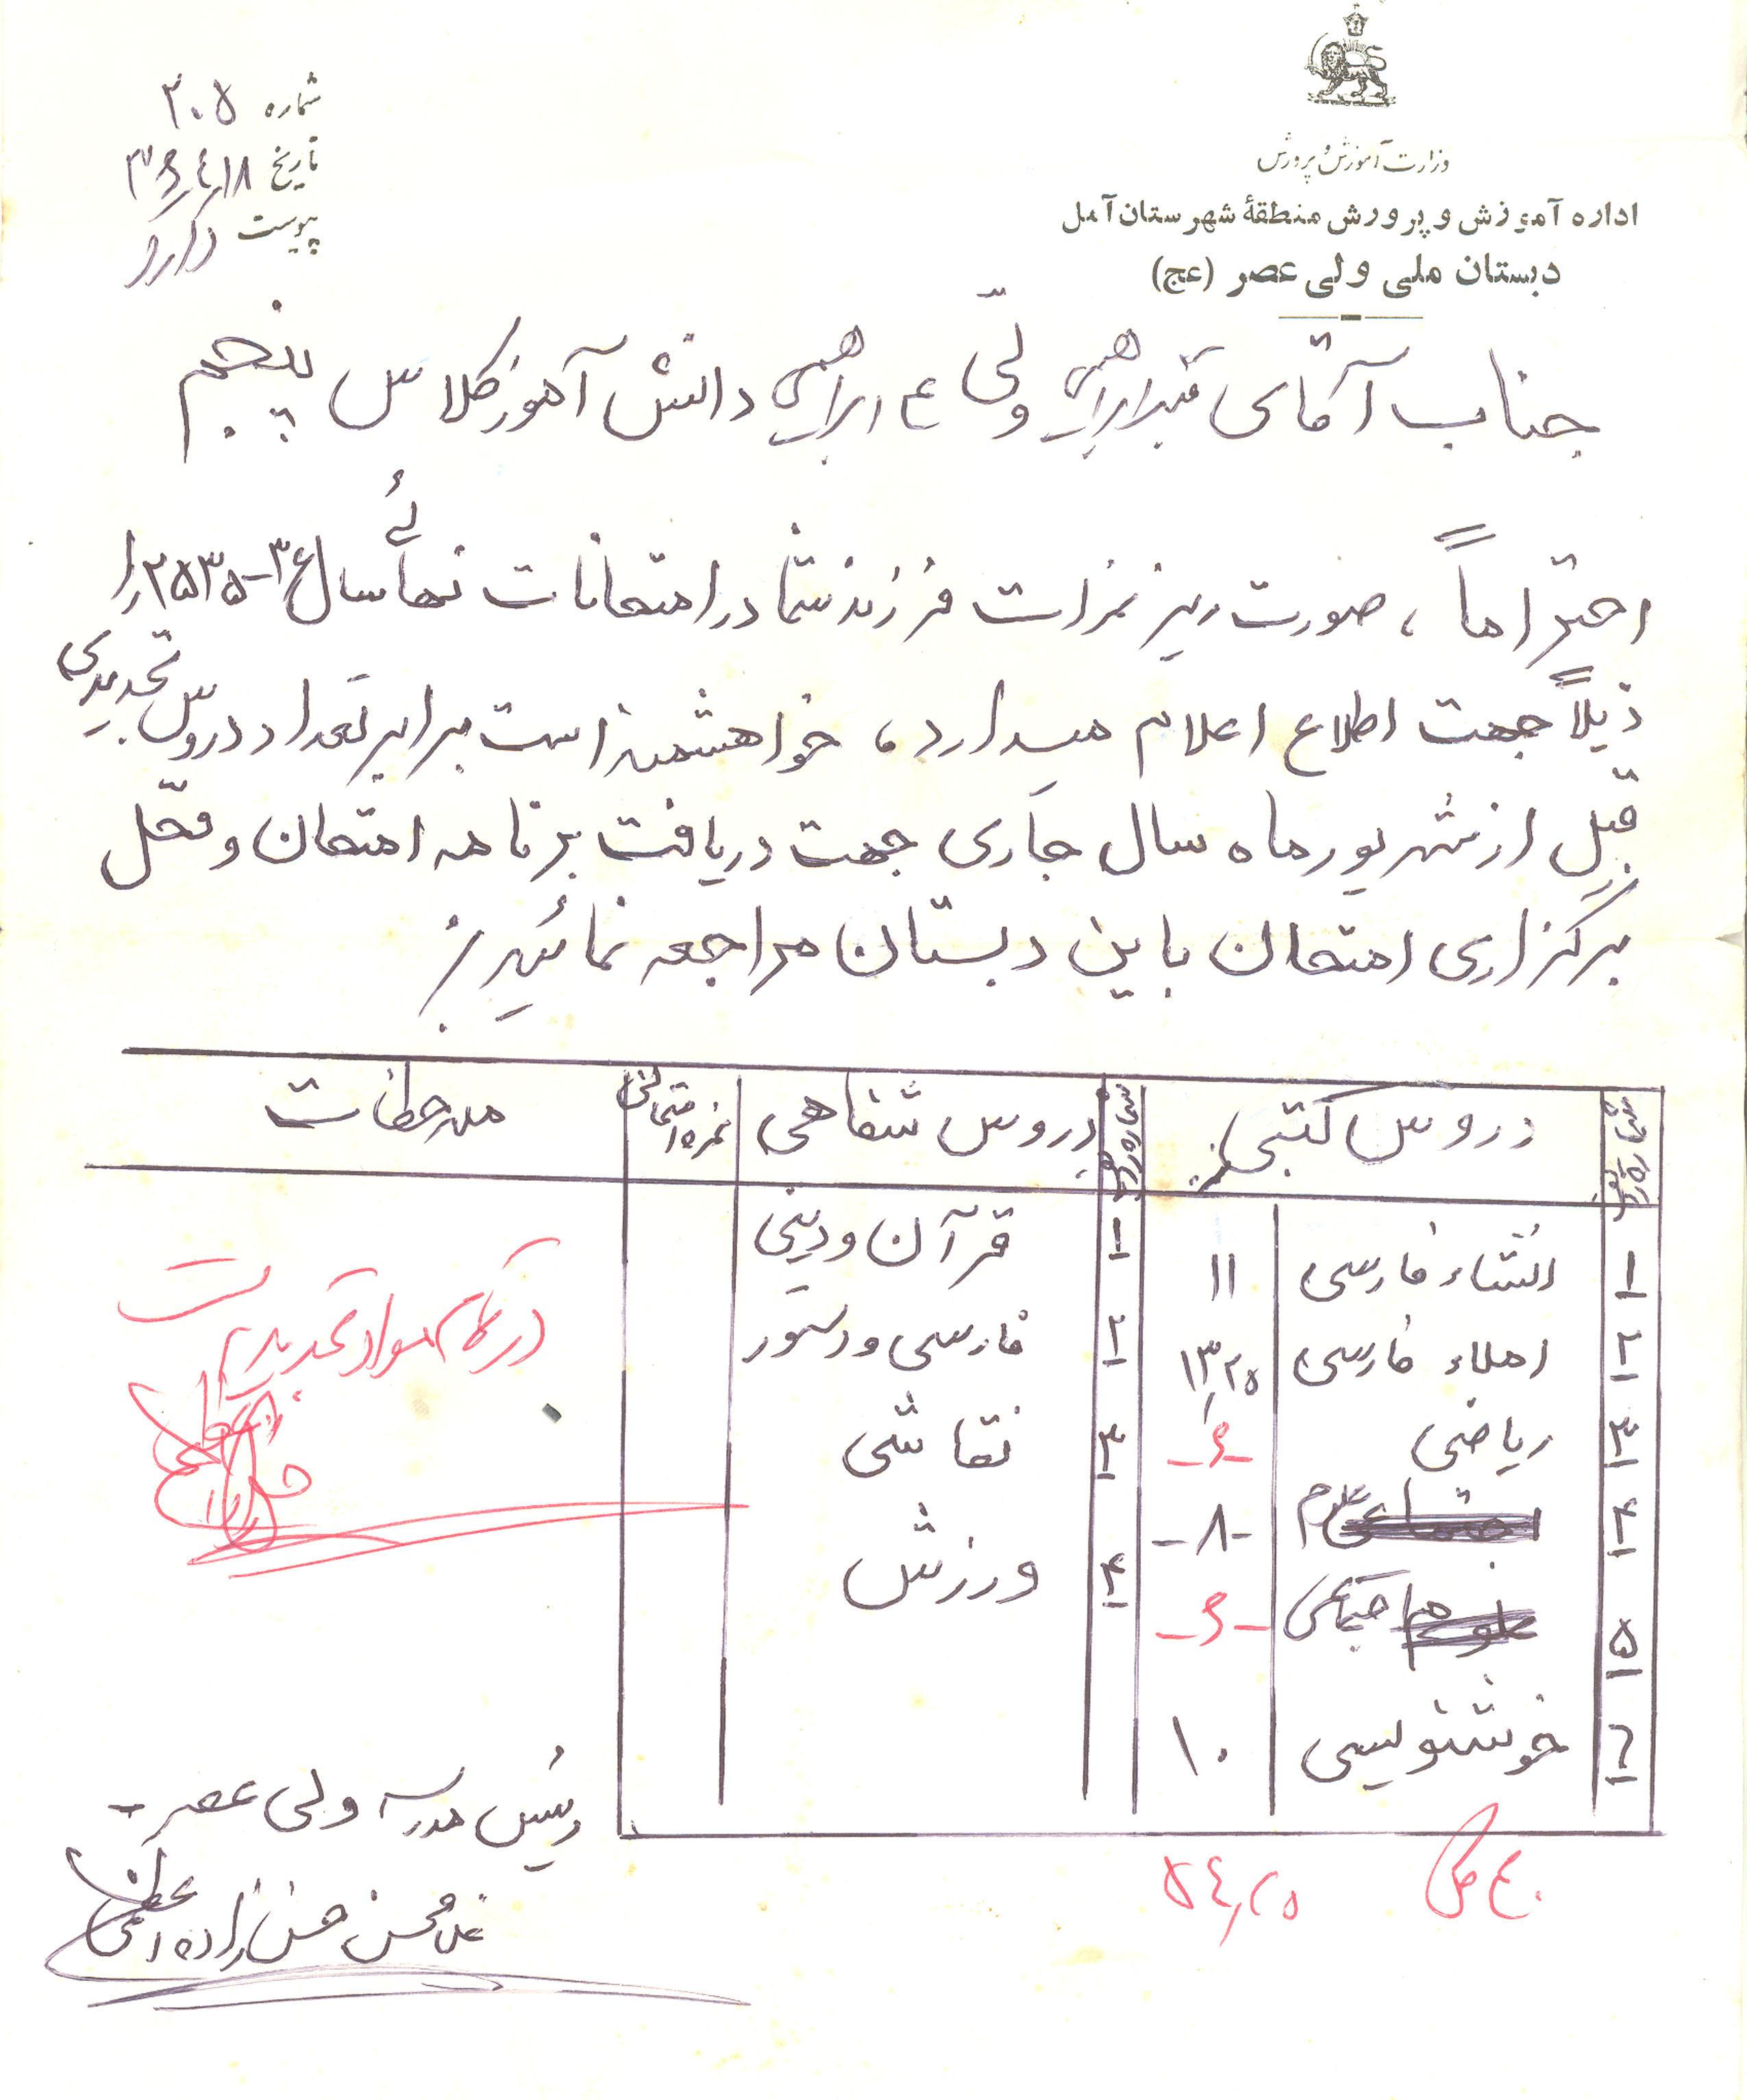 وزارت آموزش و پرورش
اداره آموزش و پرورش منطقهٔ شهرستان آمل
دبستان ملی ولی عصر (عج)
شماره ۳۰۵
تاریخ ۳۶٫۴٫۱۸
پیوست دارد
جناب آقای قنبر ابراهیمی ولیّ ع ابراهیمی دانش آموز کلاس پنجم
احتراماً، صورت ریز نمرات فرزند شما در امتحانات نهائی سال ۳۶-۲۵۳۵ را
ذیلاً جهت اطلاع اعلام میدارد، خواهشمند است برابر تعداد دروس تجدیدی
قبل از شهریور ماه سال جاری جهت دریافت برنامه امتحان و محل
برگزاری امتحان باین دبستان مراجعه نمائید
شماره ردیف دروس کتبی شماره ردیف دروس شفاهی نمره امتحانی ملاحظات
۱ انشاء فارسی ۱۱ ۱ قرآن و دینی
۲ املاء فارسی ۱۳٫۲۵ ۲ فارسی و دستور
۳ ریاضی -۶- ۳ نقاشی
۴ علوم -۸- ۴ ورزش
۵ اجتماعی -۶-
۶ خوشنویسی ۱۰
در تمام مواد تجدید است
جمع کل ۵۴٫۲۵
رئیس مدرسه ولی عصر -
غلامحسن حسن زاده آملی